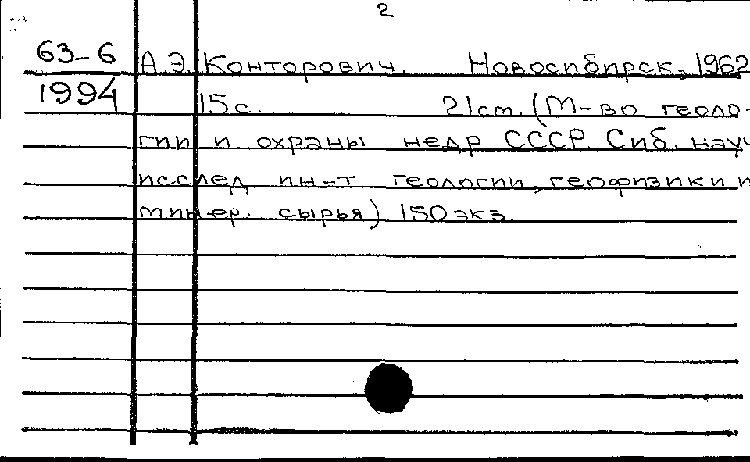 2
63-6 А.Э. Конторович. Новосибирск, 1962
1994 15 с. 21 см. (М-во геоло-
гии и охраны недр СССР. Сиб. науч
исслед. ин-т геологии, геофизики и
минер. сырья) 150 экз.